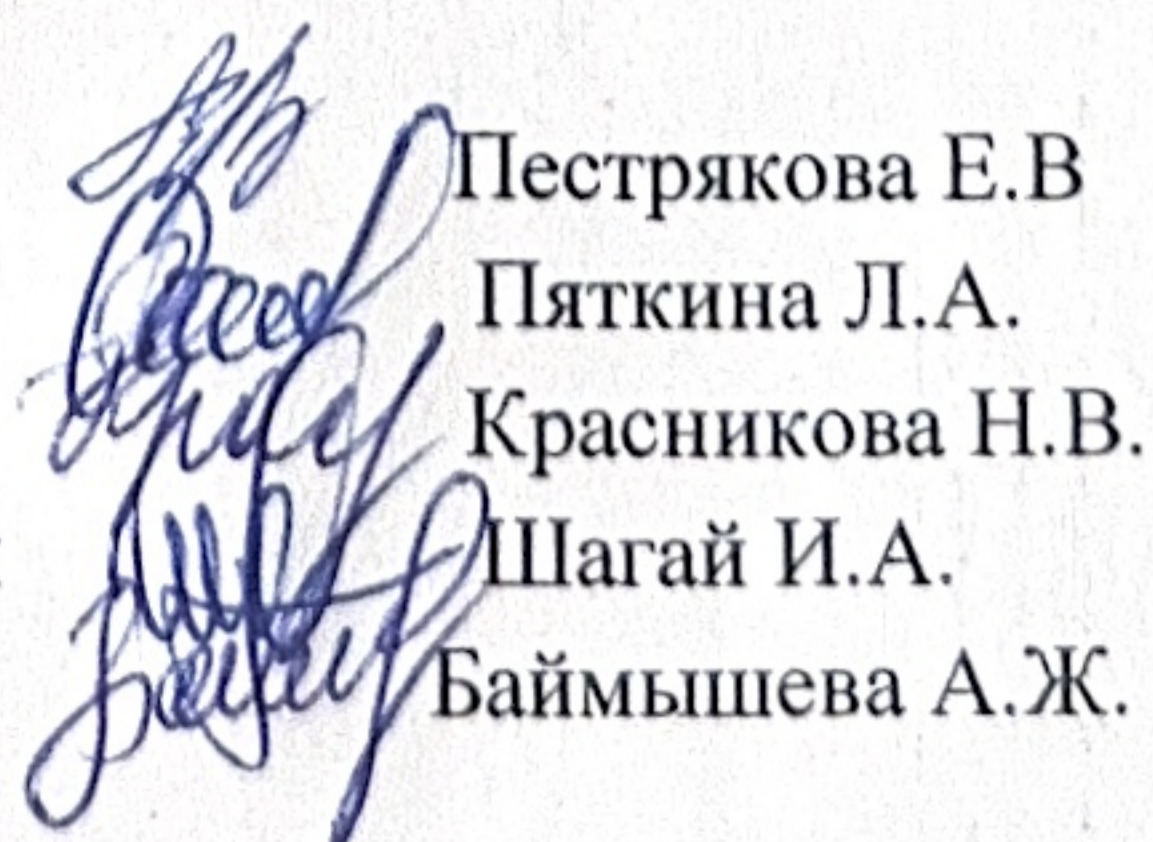 Пестрякова Е.В
Пяткина Л.А.
Красникова Н.В.
Шагай И.А.
Баймышева А.Ж.